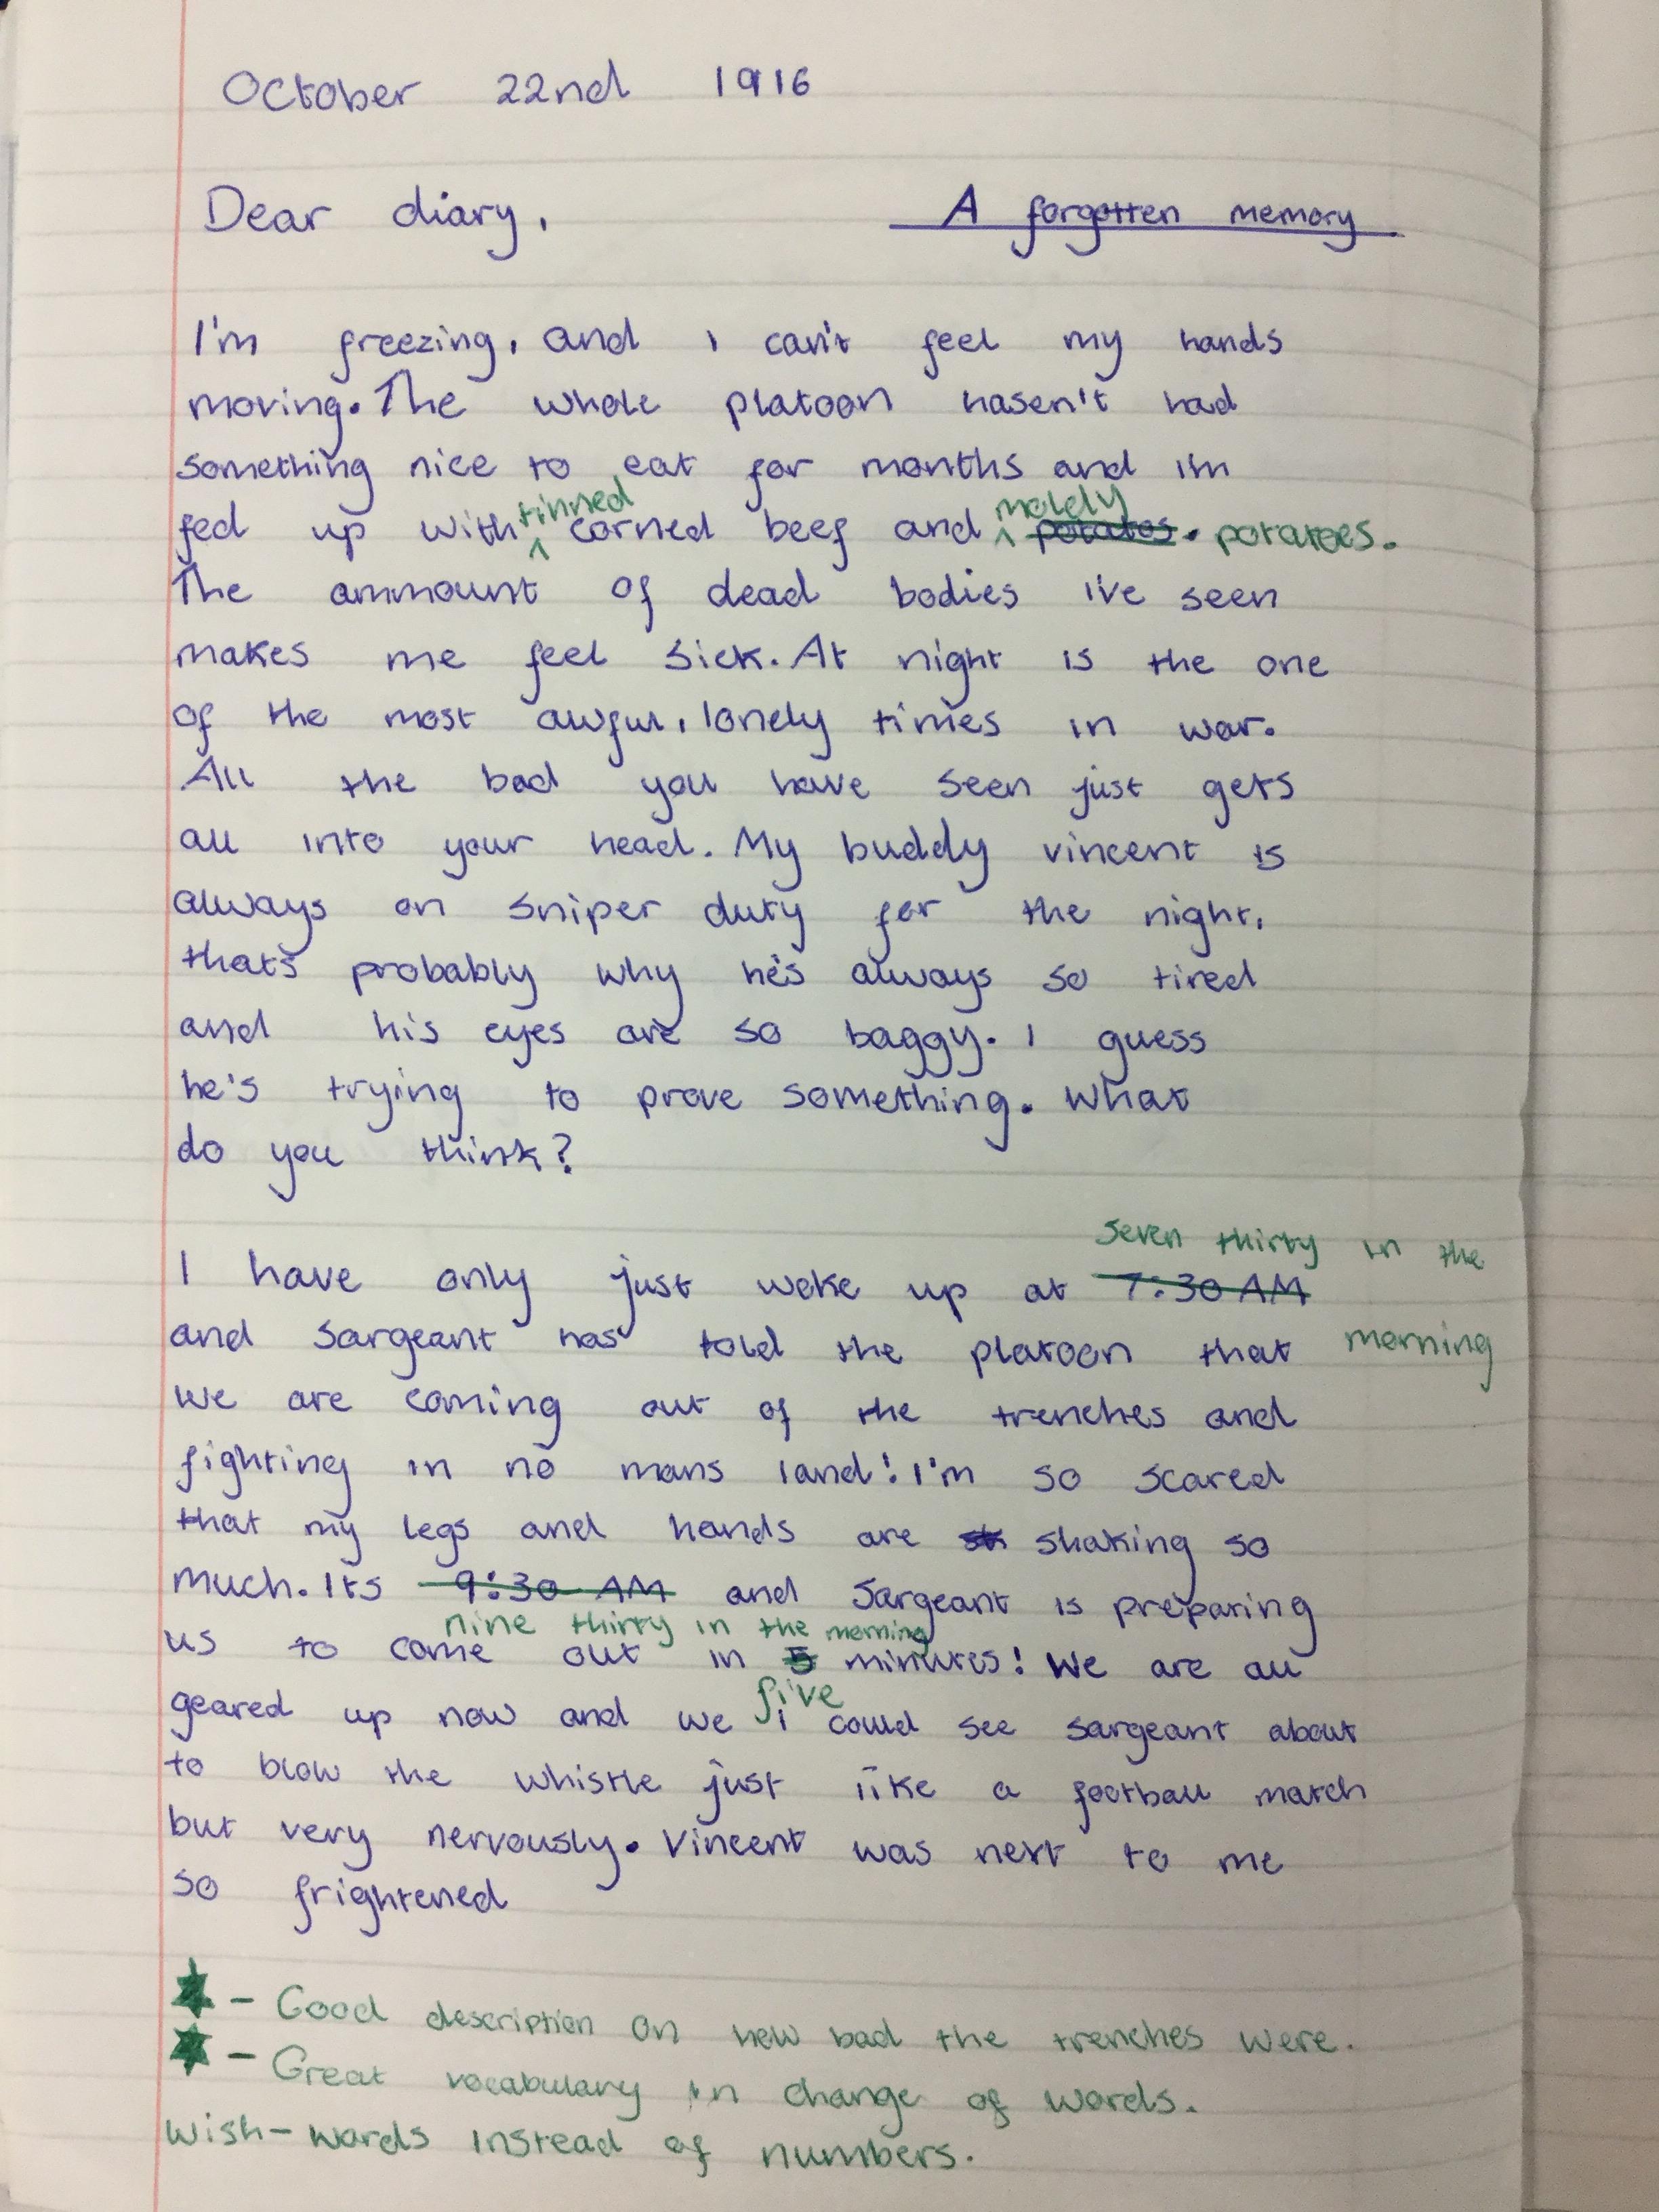 October 22nd 1916
Dear diary, A forgotten memory
I'm freezing, and I can't feel my hands
moving. The whole platoon hasen't had
something nice to eat for months and I'm
tinned moldy
fed up with corned beef and potatos. potatoes.
The ammount of dead bodies I've seen
makes me feel sick. At night is the one
of the most awful, lonely times in war.
All the bad you have seen just gets
all into your head. My buddy vincent is
always on sniper duty for the night,
that's probably why he's always so tired
and his eyes are so baggy. I guess
he's trying to prove something. What
do you think?
seven thirty in the
I have only just woke up at 7:30 AM
and Sargeant has told the platoon that morning
we are coming out of the trenches and
fighting in no mans land! I'm so scared
that my legs and hands are sh shaking so
much. Its 9:30 AM and Sargeant is preparing
nine thirty in the morning
us to come out in 5 minutes! We are all
five
geared up now and we could see sargeant about
to blow the whistle just like a football match
but very nervously. Vincent was next to me
so frightened
- Good description on how bad the trenches were.
- Great vocabulary in change of words.
Wish- words instead of numbers.